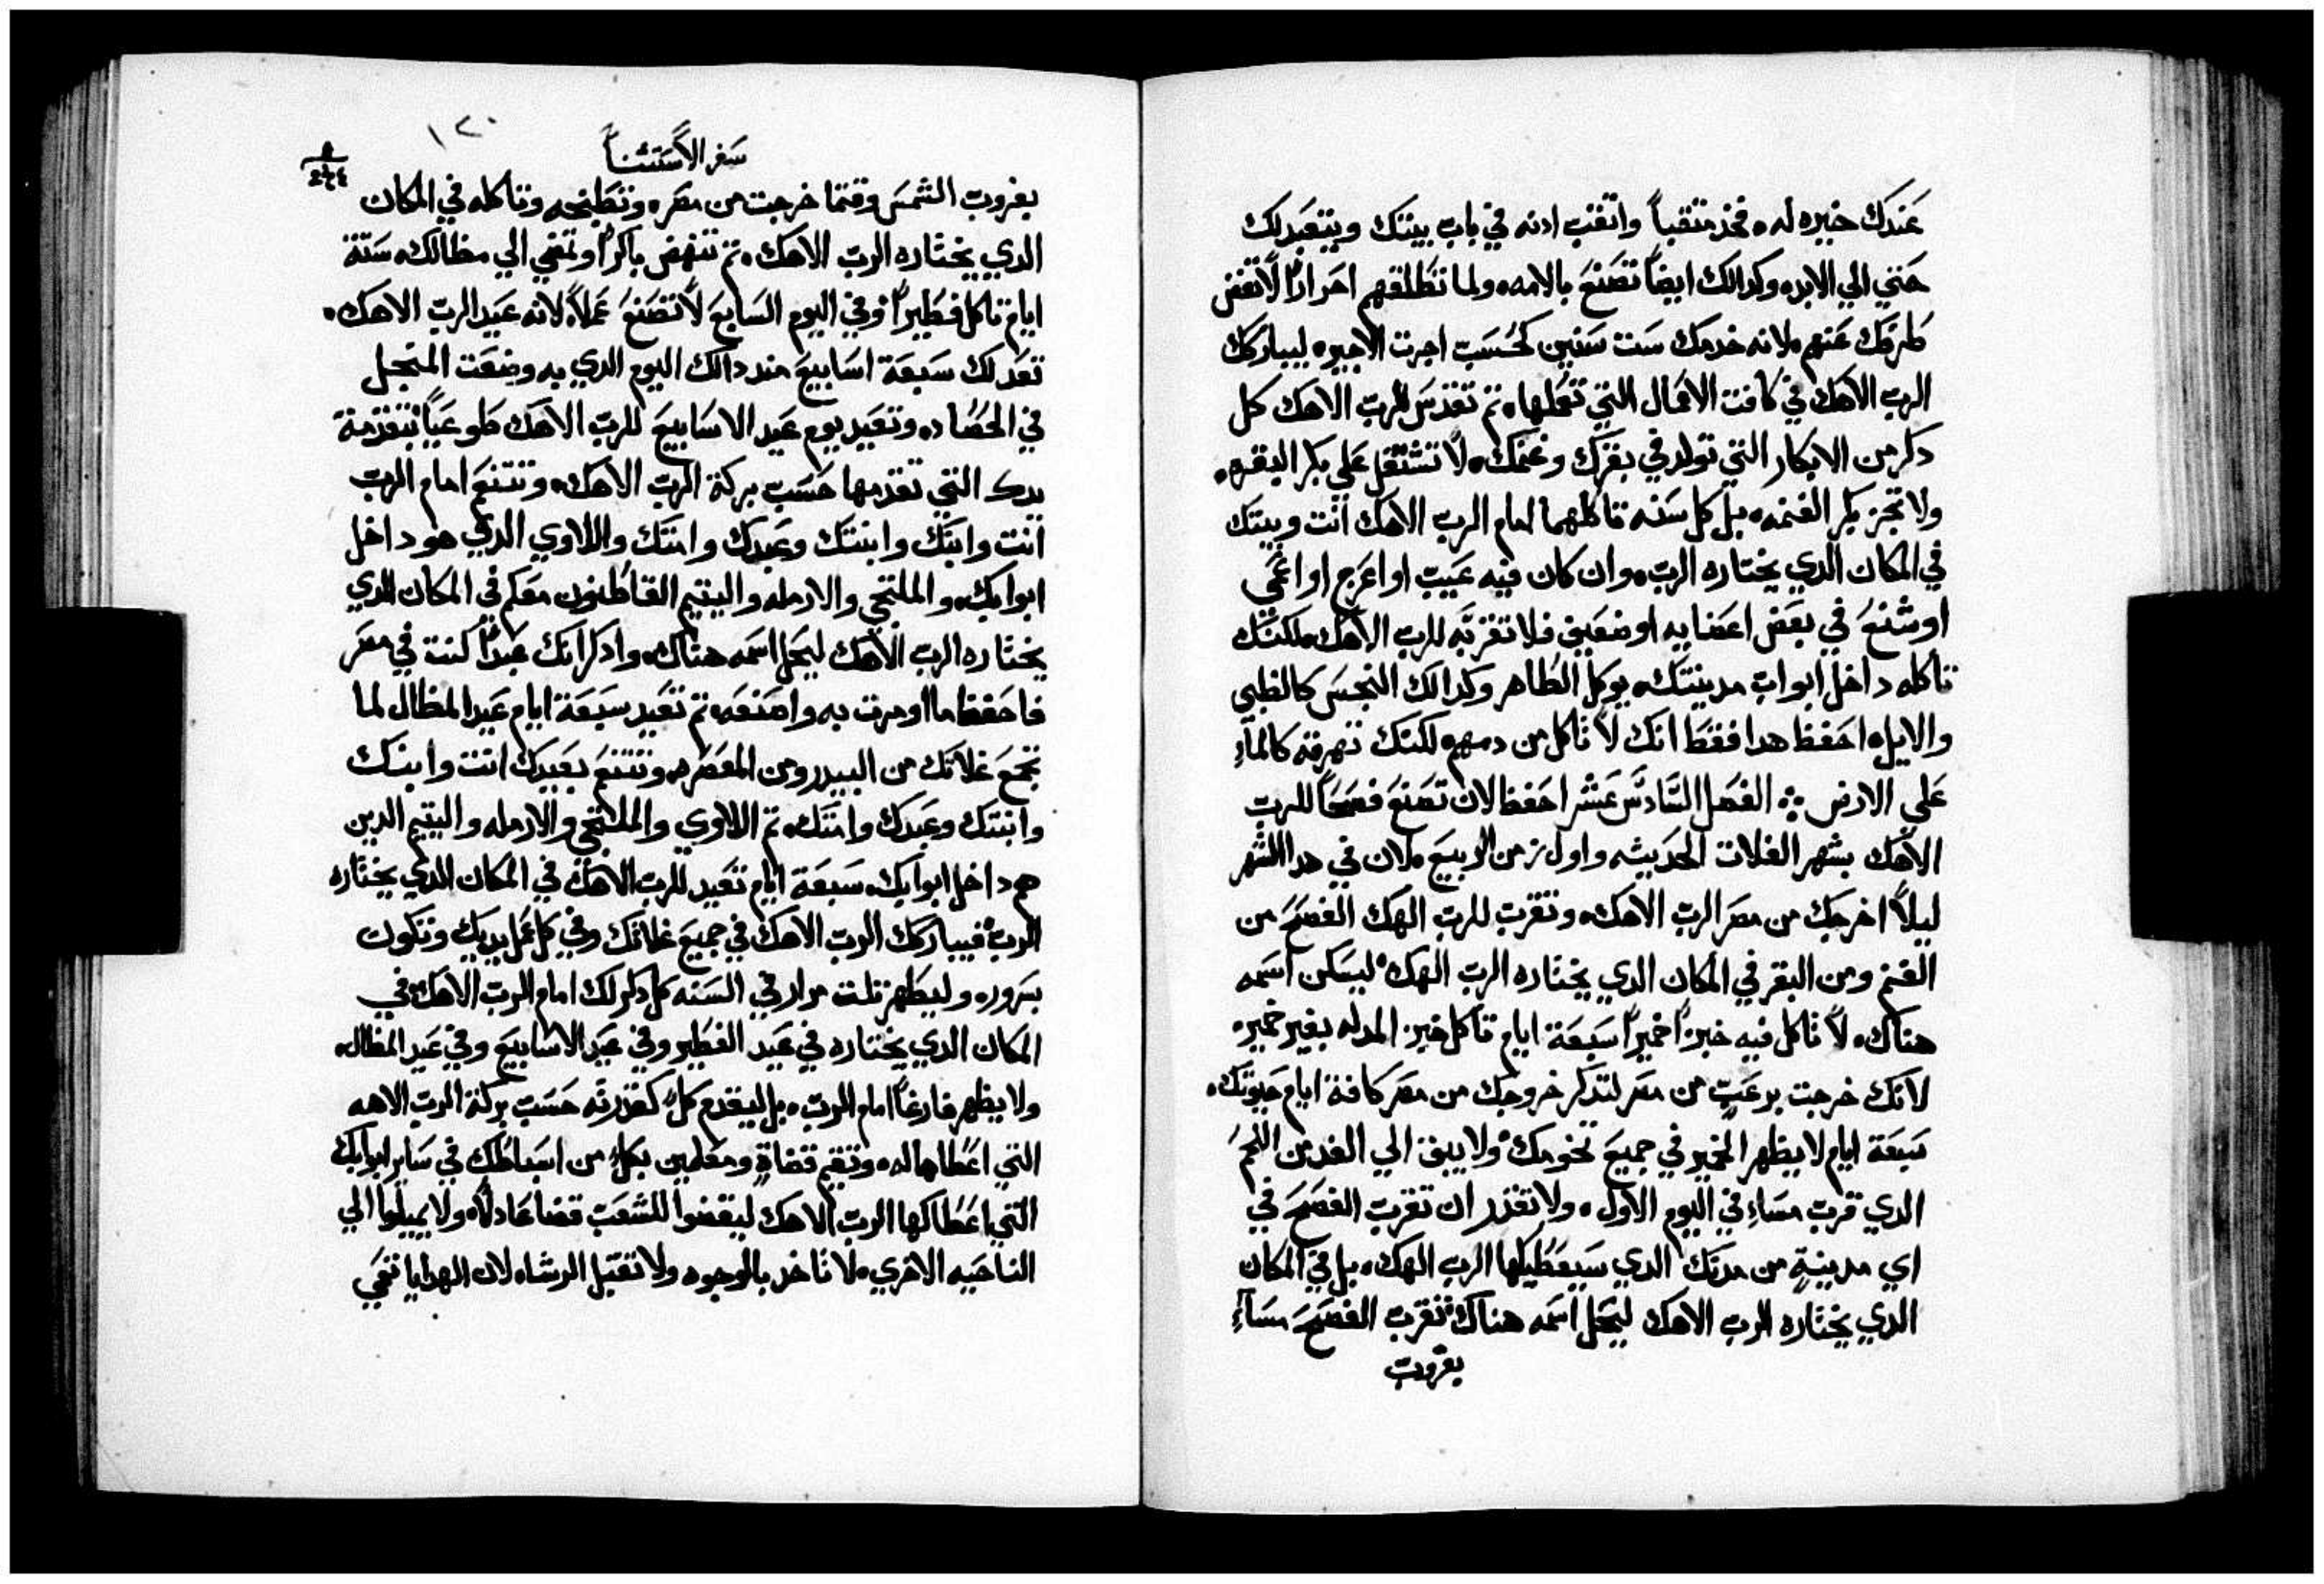 عندك خيره له فخد متقباً واتقب ادنه في باب بيتك ويتعبد لك
حتي الي الابد وكدالك ايضاً تصنع بالامه ولما تطلقهم احراراً لا تغض
طرفك عنهم لانه خدمك ست سنين كحسب اجرت الاجير ليباركك
الرب الاهك في كافت الاعمال التي تعملها تم تقدس للرب الاهك كل
دكر من الابكار التي تولد في بقرك وغنمك لا تشتغل علي بكر البقره
ولا تجز بكر الغنمه بل كل سنه تاكلهما امام الرب الاهك انت وبيتك
في المكان الدي يختاره الرب وان كان فيه عيب او اعرج او اعمي
او شنع في بعض اعضايه او ضعيف فلا تقربه للرب الاهك لكنك
تاكله داخل ابواب مدينتك يوكل الطاهر وكدالك النجس كالظبي
والايل احفظ هدا فقط انك لا تاكل من دمهم لكنك تهرقه كالمآءِ
علي الارض الفصل السادس عشر احفظ لان تصنع فصحاً للرب
الاهك بشهر الغلات الحديثه واول زمن الربيع لان في هدا الشهر
ليلاً اخرجك من مصر الرب الاهك وتقرب للرب الهك الفصح من
الغنم ومن البقر في المكان الدي يختاره الرب الهك ليسكن اسمه
هناك لا تاكل فيه خبزاً خميراً سبعة ايام تاكل خبز المدله بغير خمير
لانك خرجت برعبٍ من مصر لتدكر خروجك من مصر كافة ايام حيوتك
سبعة ايام لا يظهر الخمير في جميع تخومك ولا يبق الي الغد من اللحم
الدي قرب مساءِ في اليوم الاول ولا تقدر ان تقرب الفصح في
اي مدينةٍ من مدنك الدي سيعطيكها الرب الهك بل في المكان
الدي يختاره الرب الاهك ليحل اسمه هناك تقرب الفصح مسآءِ
بغروب
١٢٠
سفر الاستثناً
بغروب الشمس وقتما خرجت من مصر وتطبخه وتاكله في المكان
الدي يختاره الرب الاهك تم تنهض باكراً وتمضي الي مظالك ستة
ايام تاكل فطيراً وفي اليوم السابع لا تصنع عملاً لانه عيد الرب الاهك
تعد لك سبعة اسابيع مند دالك اليوم الدي به وضعت المنجل
في الحصاد وتعيد يوم عيد الاسابيع للرب الاهك طوعياً بتقدمة
يدك التي تقدمها حسب بركة الرب الاهك وتتنعم امام الرب
انت وابنك وابنتك وعبدك وامتك واللاوي الدي هو داخل
ابوابك والملتجي والارمله واليتيم القاطنون معكم في المكان الدي
يختاره الرب الاهك ليحل اسمه هناك وادكر انك عبداً كنت في مصر
فاحفظ ما اومرت به واصنعه تم تعيد سبعة ايام عيد المظال لما
تجمع غلاتك من البيدر ومن المعصره وتتنعم بعيدك انت وابنك
وابنتك وعبدك وامتك تم اللاوي والملتجي والارمله واليتيم الدين
هم داخل ابوابك سبعة ايام تعيد للرب الاهك في المكان الدي يختاره
الرب فيباركك الرب الاهك في جميع غلاتك وفي كل عمل يديك وتكون
بسرور وليظهر تلت مرار في السنه كل دكر لك امام الرب الاهك في
المكان الدي يختاره في عيد الفطير وفي عيد الاسابيع وفي عيد المظال
ولا يظهر فارغاً امام الرب بل ليقدم كلٌ كقدرته حسب بركة الرب الاهه
التي اعطاها له وتقيم قضاةٍ ومعلمين بكلٍ من اسباطك في ساير ابوابك
التي اعطاكها الرب الاهك ليقضوا للشعب قضا عادلاً ولا يميلوا الي
الناحيه الاخري لا تاخد بالوجوه ولا تقبل الرشا لان الهدايا تعمي